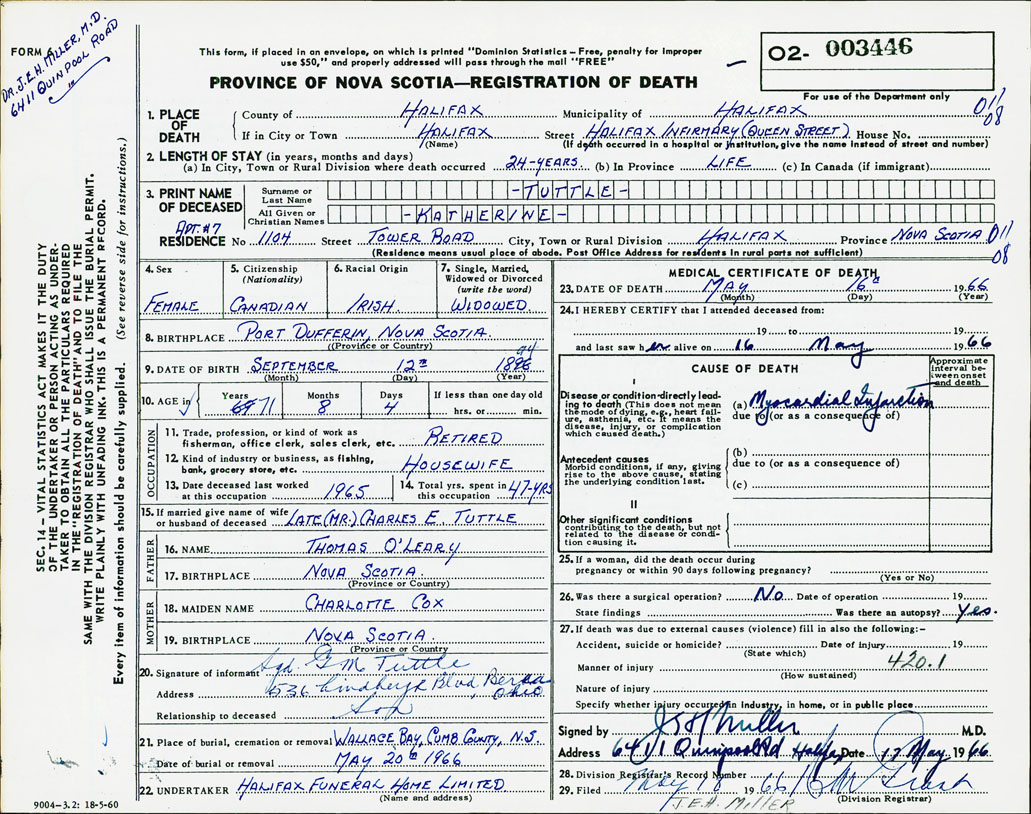 FORM 6
DR. J.E.H. MILLER, M.D.
6411 QUINPOOL ROAD
This form, if placed in an envelope, on which is printed "Dominion Statistics – Free, penalty for improper
use $50," and properly addressed will pass through the mail "FREE"
PROVINCE OF NOVA SCOTIA—REGISTRATION OF DEATH
O2- 003446
For use of the Department only
1. PLACE OF DEATH County of HALIFAX Municipality of HALIFAX 011
08
If in City or Town HALIFAX Street HALIFAX INFIRMARY (QUEEN STREET) House No.
(Name) (If death occurred in a hospital or institution, give the name instead of street and number)
2. LENGTH OF STAY (in years, months and days)
(a) In City, Town or Rural Division where death occurred 24-YEARS. (b) In Province LIFE (c) In Canada (if immigrant)
3. PRINT NAME OF DECEASED Surname or Last Name -TUTTLE-
All Given or Christian Names -KATHERINE-
APT. #7
RESIDENCE No 1104 Street TOWER ROAD City, Town or Rural Division HALIFAX Province NOVA SCOTIA 011
08
(Residence means usual place of abode. Post Office Address for residents in rural parts not sufficient)
4. Sex FEMALE
5. Citizenship (Nationality) CANADIAN
6. Racial Origin IRISH.
7. Single, Married, Widowed or Divorced (write the word) WIDOWED
8. BIRTHPLACE PORT DUFFERIN, NOVA SCOTIA.
(Province or Country)
9. DATE OF BIRTH SEPTEMBER 12th 1896 94
(Month) (Day) (Year)
10. AGE in Years 69 71 Months 8 Days 4 If less than one day old hrs. or min.
OCCUPATION
11. Trade, profession, or kind of work as fisherman, office clerk, sales clerk, etc. RETIRED
12. Kind of industry or business, as fishing, bank, grocery store, etc. HOUSEWIFE
13. Date deceased last worked at this occupation 1965
14. Total yrs. spent in this occupation 47-YRS
15. If married give name of wife or husband of deceased LATE (MR.) CHARLES E. TUTTLE
FATHER
16. NAME THOMAS O'LEARY
17. BIRTHPLACE NOVA SCOTIA.
(Province or Country)
MOTHER
18. MAIDEN NAME CHARLOTTE COX
19. BIRTHPLACE NOVA SCOTIA.
(Province or Country
20. Signature of informant Sgd. G M Tuttle
Address 536 Lindbergh Blvd, Berea
Ohio
Relationship to deceased Son
21. Place of burial, cremation or removal WALLACE BAY, CUMB. COUNTY, N.S.
Date of burial or removal MAY 20th 1966
22. UNDERTAKER HALIFAX FUNERAL HOME LIMITED
(Name and address)
9004–3.2: 18-5-60
MEDICAL CERTIFICATE OF DEATH
23. DATE OF DEATH MAY 16th 1966
(Month) (Day) (Year)
24. I HEREBY CERTIFY that I attended deceased from:
19 to 19
and last saw her alive on 16 May 1966
CAUSE OF DEATH
Approximate interval between onset and death
I
Disease or condition directly leading to death (This does not mean the mode of dying, e.g., heart failure, asthenia, etc. It means the disease, injury, or complication which caused death.)
(a) Myocardial Infarction
due to (or as a consequence of)
Antecedent causes
Morbid conditions, if any, giving rise to the above cause, stating the underlying condition last.
(b)
due to (or as a consequence of)
(c)
II
Other significant conditions
contributing to the death, but not related to the disease or condition causing it.
25. If a woman, did the death occur during
pregnancy or within 90 days following pregnancy?
(Yes or No)
26. Was there a surgical operation? No Date of operation 19
State findings Was there an autopsy? Yes.
27. If death was due to external causes (violence) fill in also the following:–
Accident, suicide or homicide? Date of injury 19
(State which)
Manner of injury 420.1
(How sustained)
Nature of injury
Specify whether injury occurred in industry, in home, or in public place
Signed by JEH Miller M.D.
Address 6411 Quinpool Rd Halifax Date 17 May 1966
28. Division Registrar's Record Number
29. Filed May 18 1966
(Division Registrar)
J.E.H. MILLER
SEC. 14 – VITAL STATISTICS ACT MAKES IT THE DUTY
OF THE UNDERTAKER OR PERSON ACTING AS UNDER-
TAKER TO OBTAIN ALL THE PARTICULARS REQUIRED
IN THE "REGISTRATION OF DEATH" AND TO FILE THE
SAME WITH THE DIVISION REGISTRAR WHO SHALL ISSUE THE BURIAL PERMIT.
WRITE PLAINLY WITH UNFADING INK. THIS IS A PERMANENT RECORD.
Every item of information should be carefully supplied. (See reverse side for instructions.)